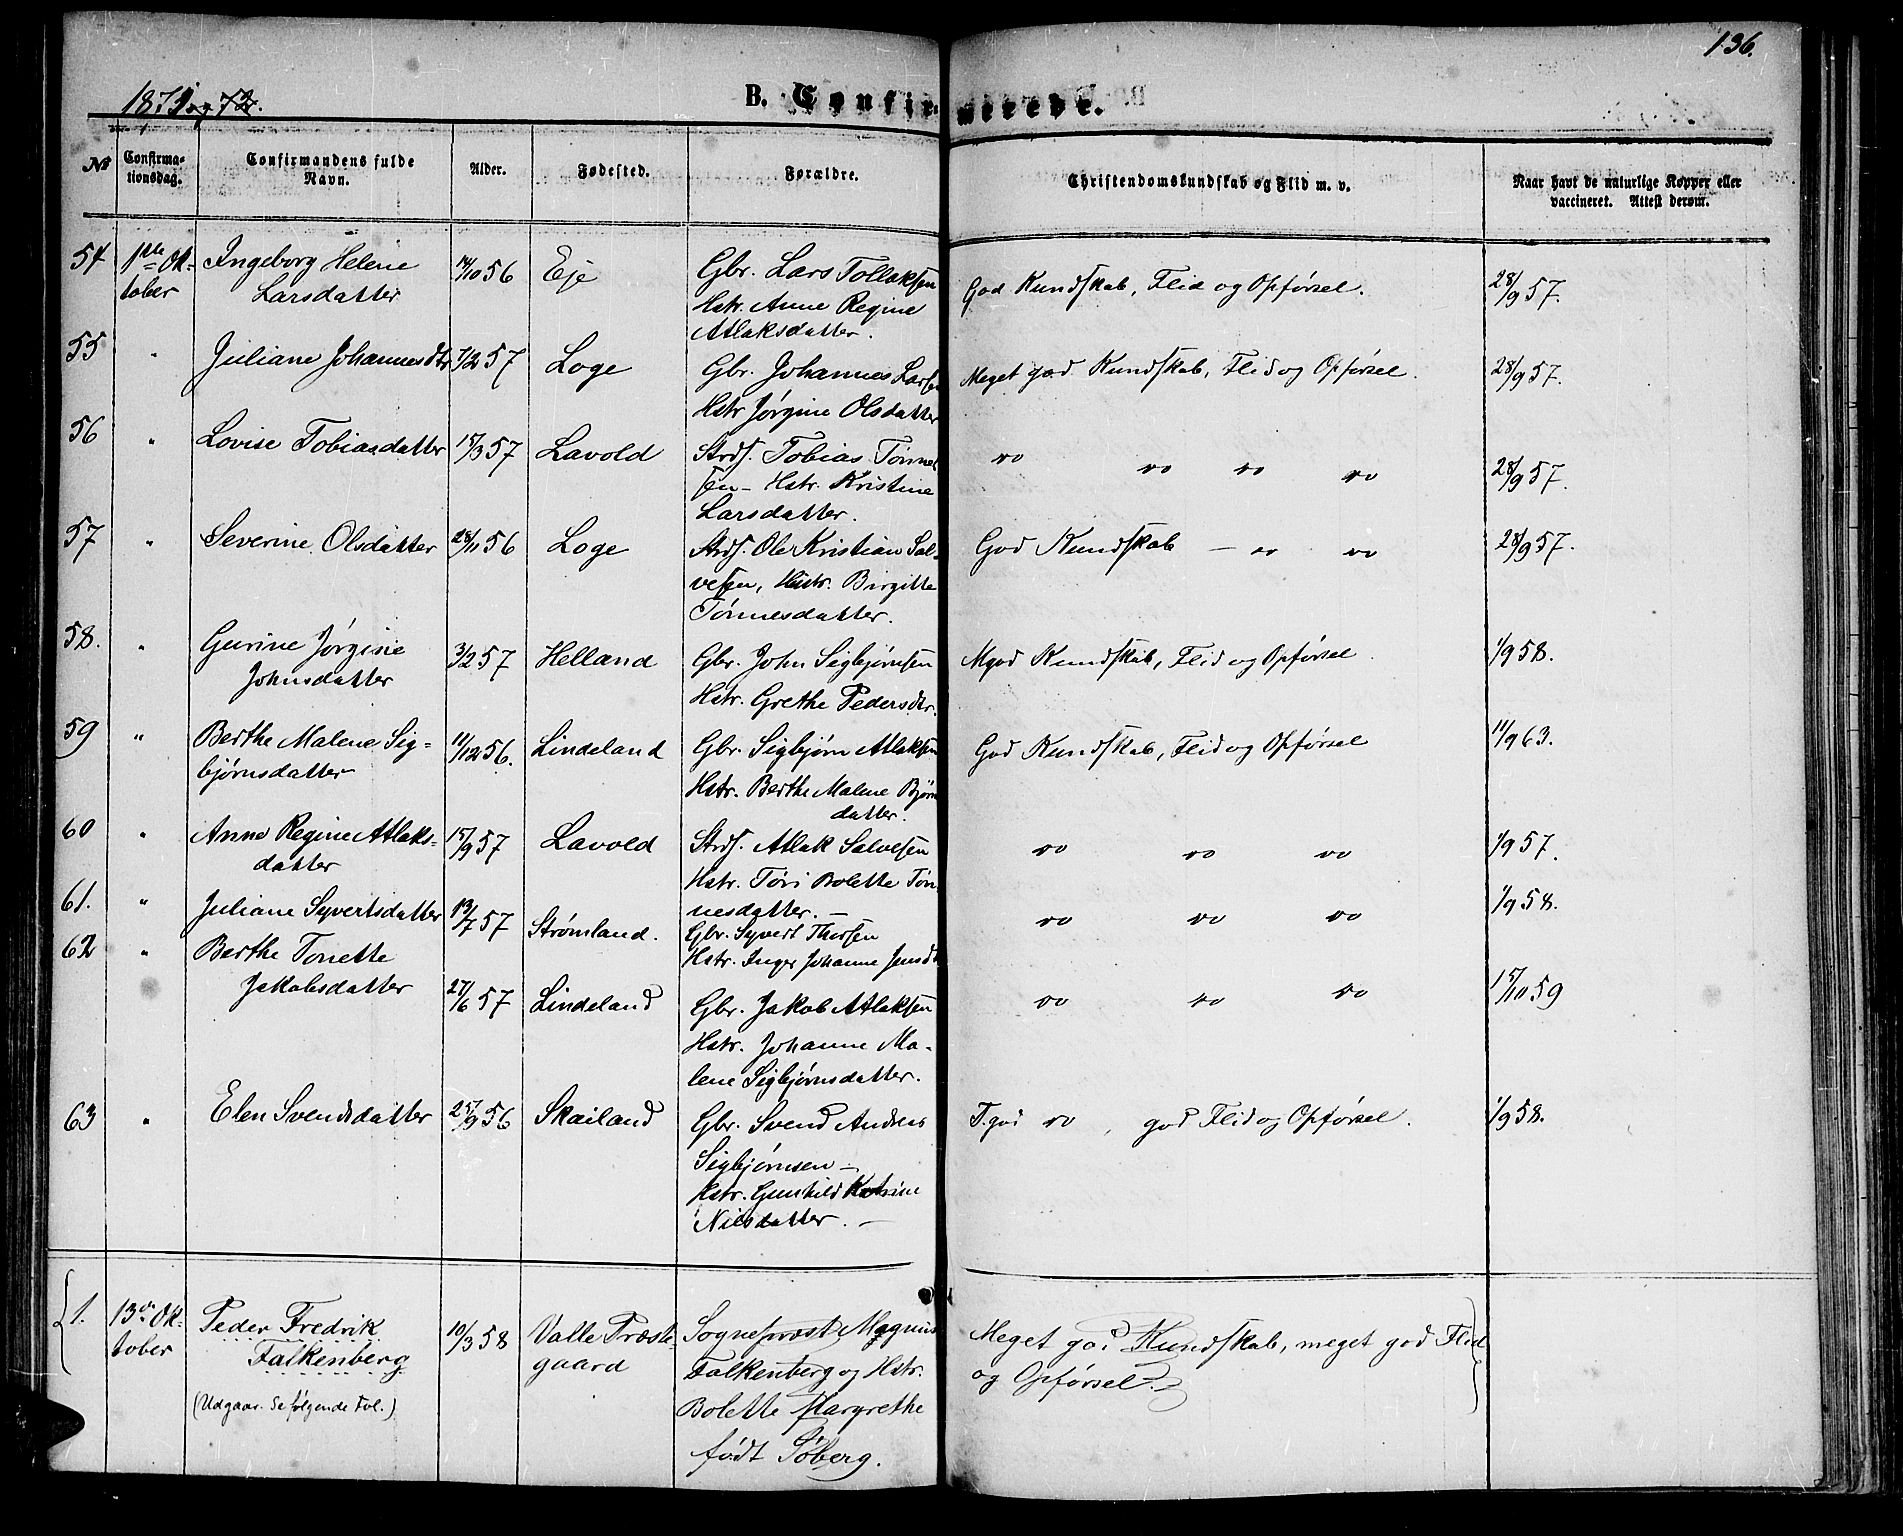 136.
1871 og 72.
B. Confirmerede.
No
Confirma-
tionsdag.
Confirmandens fulde
Navn.
Alder.
Fødested.
Forældre.
Christendomskundskab og Flid m. v.
Naar havt de naturlige Kopper eller
vaccineret. Attest derom.
54 1ste Ok- Ingeborg Helene 14/10 56 Eje Gbr. Lars Tollaksen God Kundskab, Flid og Opførsel. 28/9 57.
tober Larsdatter Hstr. Anne Regine
Atlaksdatter.
55 " Juliane Johannesdtr 7/2 57 Loge Gbr. Johannes Larsen Meget god Kundskab, Flid og Opførsel. 28/9 57.
Hstr Jørgine Olsdatter
56 " Lovise Tobiasdatter 15/3 57 Lavold Strds. Tobias Tønne- do do do do 28/9 57.
sen - Hstr. Kristine
Larsdatter.
57 " Severine Olsdatter 28/11 56 Loge Strds. Ole Kristian Sal- God Kundskab - do do 28/9 57.
vesen, Hstr. Birgitte
Tønnesdatter.
58. " Gurine Jørgine 3/2 57 Helland Gbr. John Sigbjørnsen Mgod Kundskab, Flid og Opførsel 1/9 58.
Johnsdatter Hstr. Grethe Pedersdtr.
59 " Berthe Malene Sig- 11/12 56. Lindeland Gbr. Sigbjørn Atlaksen God Kundskab, Flid og Opførsel 11/9 63.
bjørnsdatter Hstr. Berthe Malene Bjørn
datter.
60 " Anne Regine Atlaks- 15/9 57 Lavold Strds. Atlak Salvesen do do do 1/9 57.
datter Hstr. Tøri Bolette Tøn-
nesdatter. -
61. " Juliane Syvertsdatter 13/7 57 Strømland. Gbr. Syvert Thorsen do do do 1/9 58.
Hstr. Inger Johanne Jensdt
62 " Berthe Tonette
Jakobsdatter 27/6 57 Lindeland Gbr. Jakob Atlaksen do do do 15/10 59
Hstr. Johanne Ma-
lene Sigbjørnsdatter.
63 " Elen Svendsdatter 25/9 56 Skailand Gbr. Svend Andreas T. god do, god Flid og Opførsel. 1/9 58.
Sigbjørnsen -
Hstr. Gunhild Katrine
Nilsdatter. -
1. 13de Ok- Peder Fredrik 10/3 58 Valle Præste- Sognepræst Magnus Meget god Kundskab, meget god Flid
tober Falkenberg gaard Falkenberg og Hstr. og Opførsel.
(Udgaar. Se følgende Fol.) Bolette Margrethe
født Søberg.